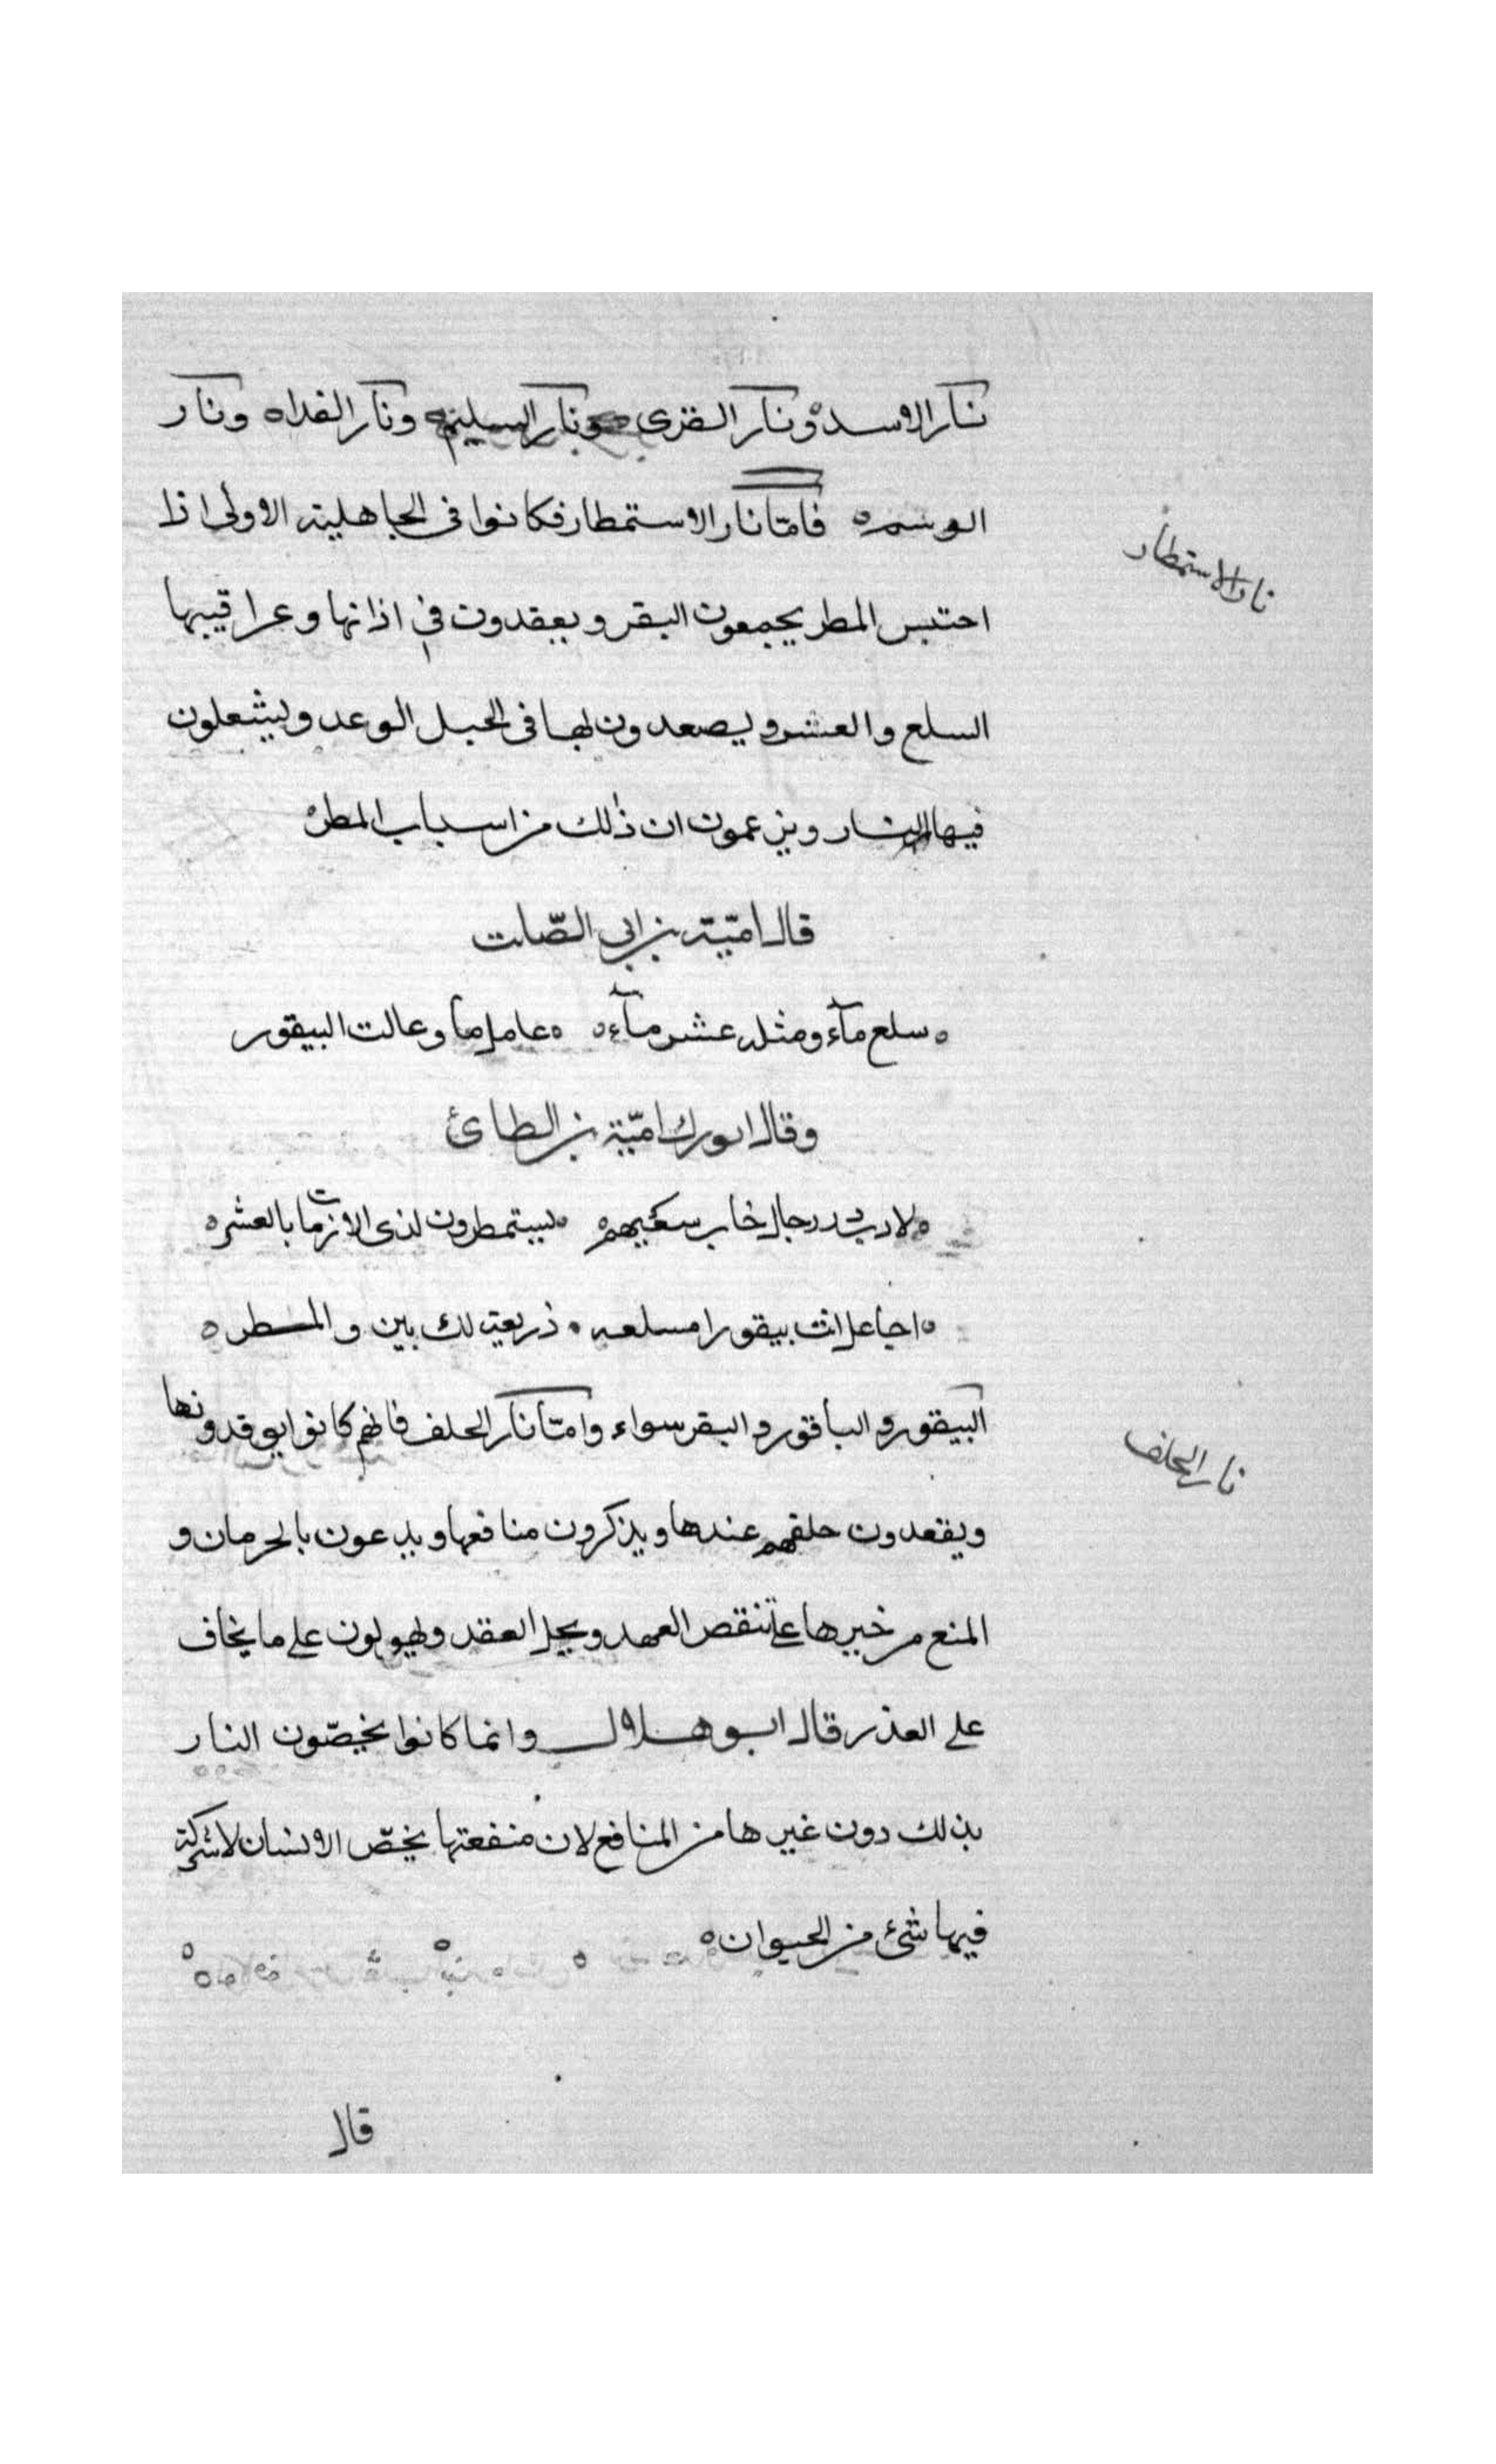 نار الاسد ونار القرى ونار السليم ونار الفداه ونار
الوسمه فامّا نار الاستمطار فكانوا فى الجاهلية الاولى اذا
نار الاستمطار
احتبس المطر يجمعون البقر ويعقدون في اذانها وعراقيبها
السلع والعشر ويصعدون بها فى الجبل الوعد ويشعلون
فيها النار ويزعمون ان ذلك من اسباب المطره
قال اميّة بن ابى الصّلت
سلع مآء ومثله عشر مآء عامل ما وعالت البيقور
وقال اميّة بن الطائ
لادر در رجال خاب سعيهم يستمطرون لذى الازمات بالعشر
اجاعل انت بيقورا مسلعه ذريعة لك بين والمطر
البيقور والباقور والبقر سواء وامّا نار الحلف فانهم كانوا يوقدونها
نار الحلف
ويقعدون حلفهم عندها ويذكرون منافعها ويدعون بالحرمان و
المنع من خيرها على تنقص العهد ويحل العقد ويهولون على ما يخاف
على العذر قال ابو هلال وانما كانوا يخصّون النار
بذلك دون غيرها من المنافع لان منفعتها يخصّ الانسان لا شركة
فيها شئ من الحيوان
قال